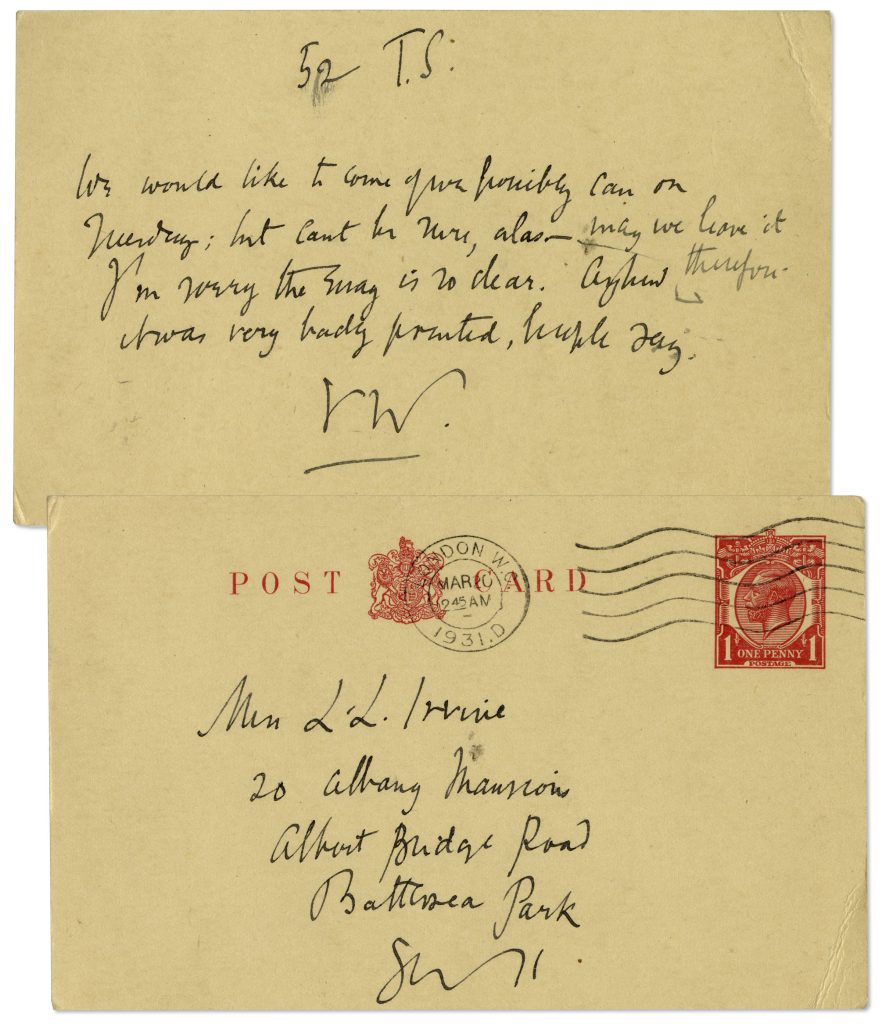 52 T.S.
We would like to come if we possibly can on
Tuesday; but cant be sure, alas — may we leave it
I'm sorry the Essay is so dear. And therefore
it was very badly printed, people say.
VW.
POST CARD
LONDON W.C.
MAR 10
2 45 AM
1931.D
1 ONE PENNY 1
POSTAGE
Miss L.L. Irvine
20 Albany Mansions
Albert Bridge Road
Battersea Park
SW 11